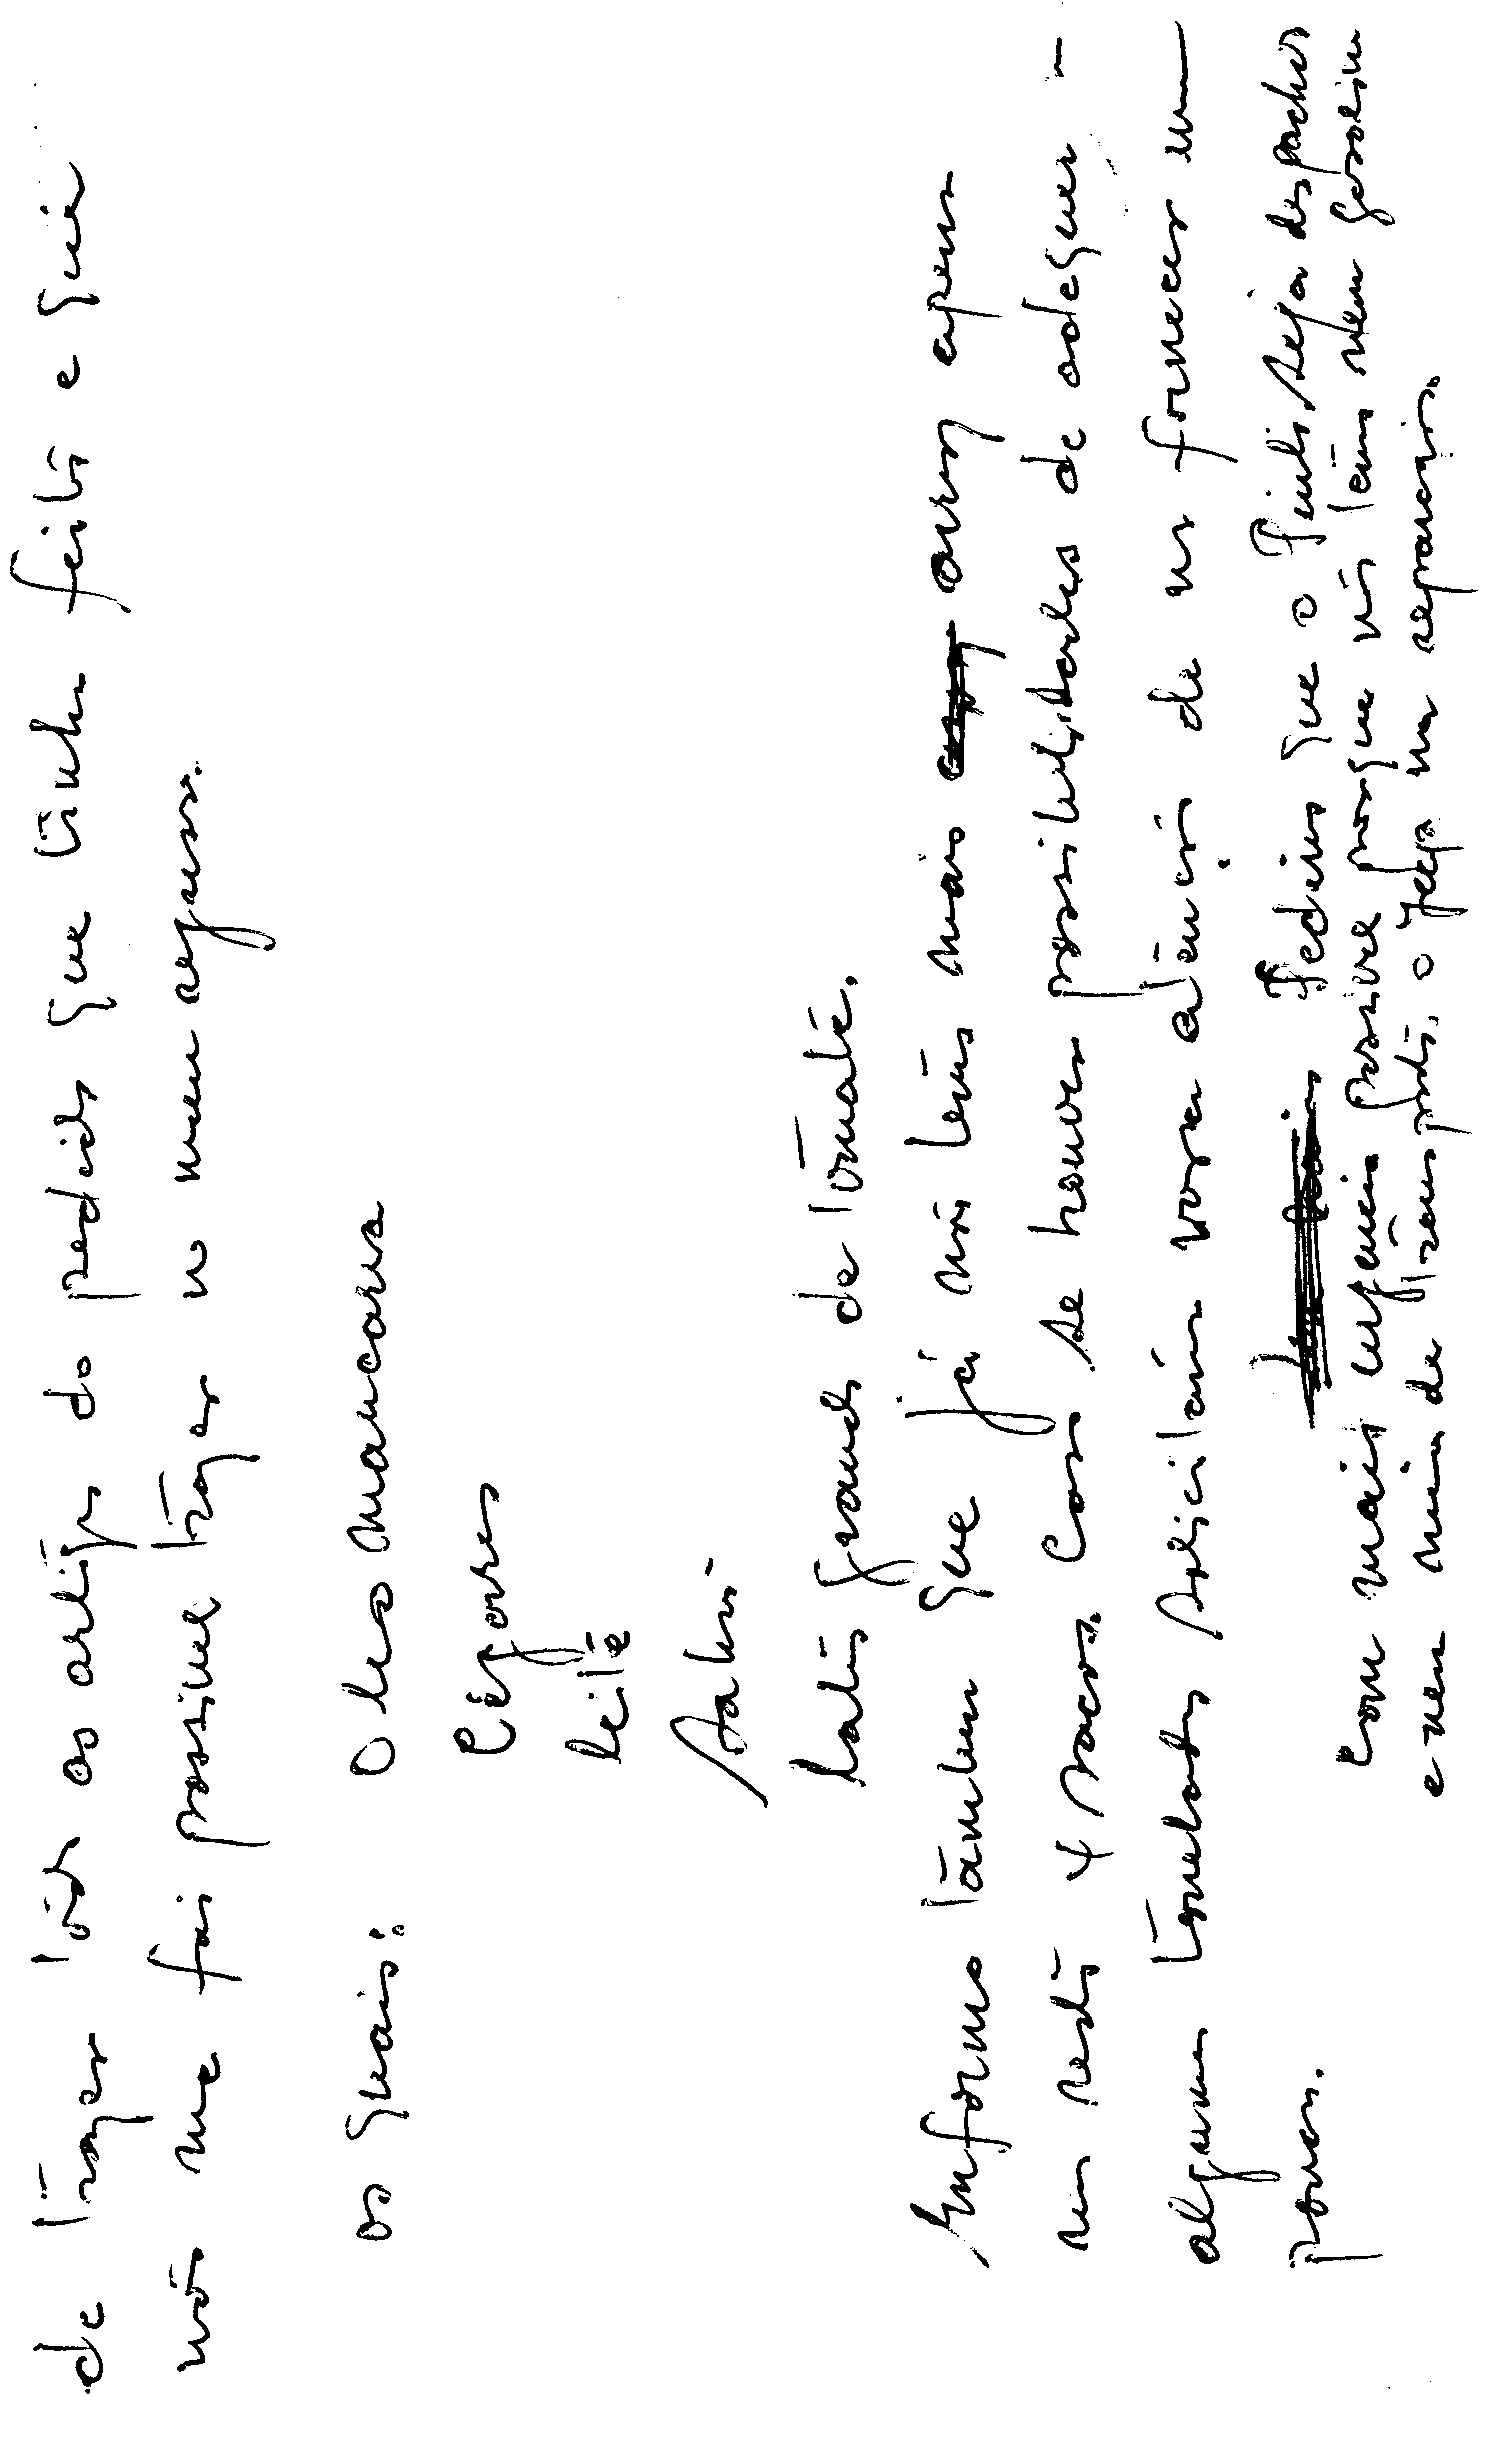 de trazer todo os artigo do pedido que tinha feito e que
não me foi possivel trazer no meu regresso.
os quais: Oleo mancara
Cigares
leite
Sabão
latas grande de tomate.
Informo também que já não temos mais arroz apenas
me resta 4 sacos. Caso se houver possibilidades de adequar -
algumas toneladas solicitava vossa atenção de nos fornecer um
pouco. Pedimos que o Pinto seja despachos
com mais urgencia possivel porque não temos nem gasolina
e nem meio de transporte. o Jeep na reparação.